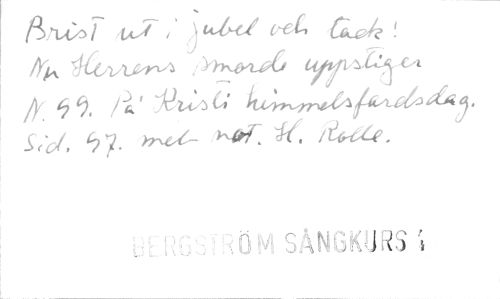 Brist ut i jubel och tack!
Nu Herrens smorde uppstiger
N. 99. På Kristi himmelsfärdsdag.
Sid. 97. mel. o not. H. Rolle.
BERGSTRÖM SÅNGKURS 1